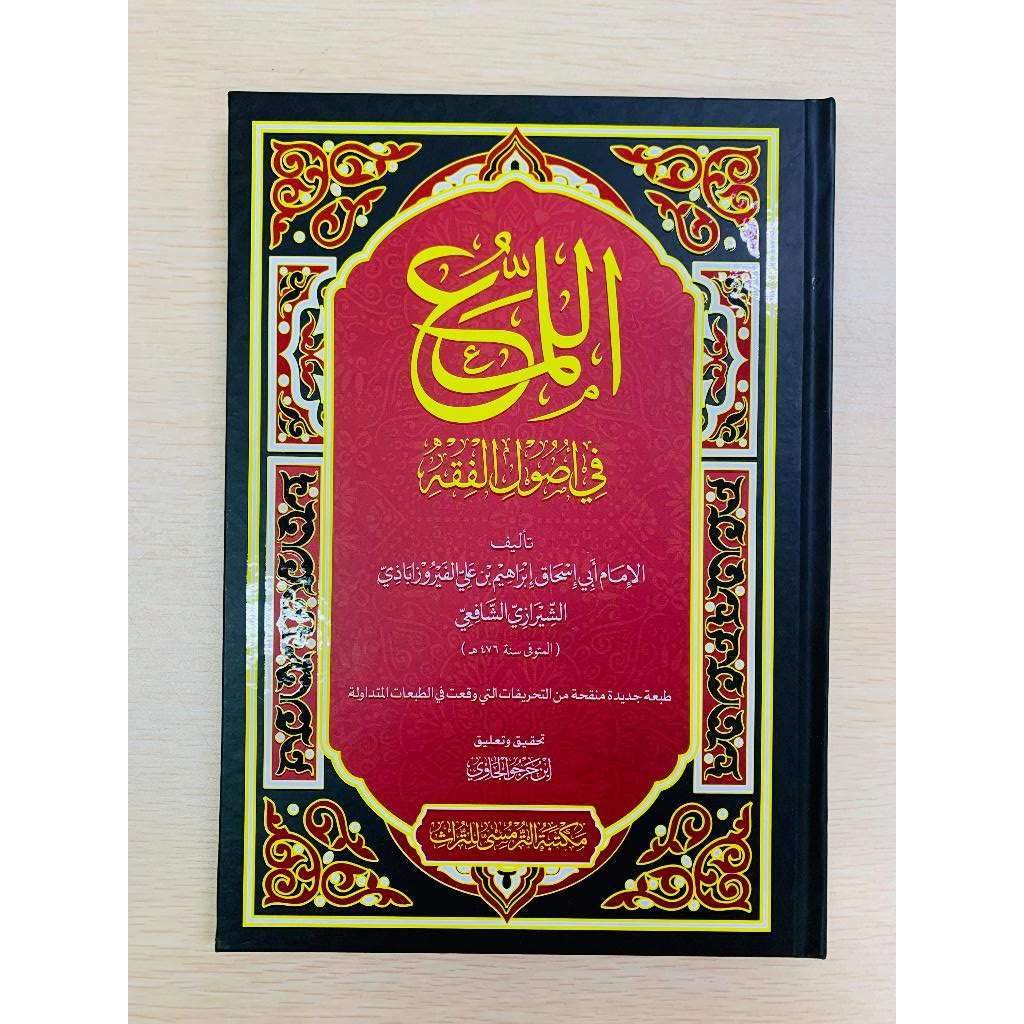 اللُّمَع
فِي أُصُولِ الْفِقْهِ
تأليف
الإِمَام أَبِي إِسْحَاق إِبْرَاهِيْم بْن عَلِيّ الفَيْرُوزَابَاذِيّ
الشِّيْرَازِيّ الشَّافِعِيّ
( المتوفى سنة ٤٧٦ هـ )
طبعة جديدة منقحة من التحريفات التي وقعت في الطبعات المتداولة
تحقيق وتعليق
ابْن حَرْجُو الجَاوِي
مَكْتَبَةُ التُّرْمُسِيّ لِلتُّرَاث